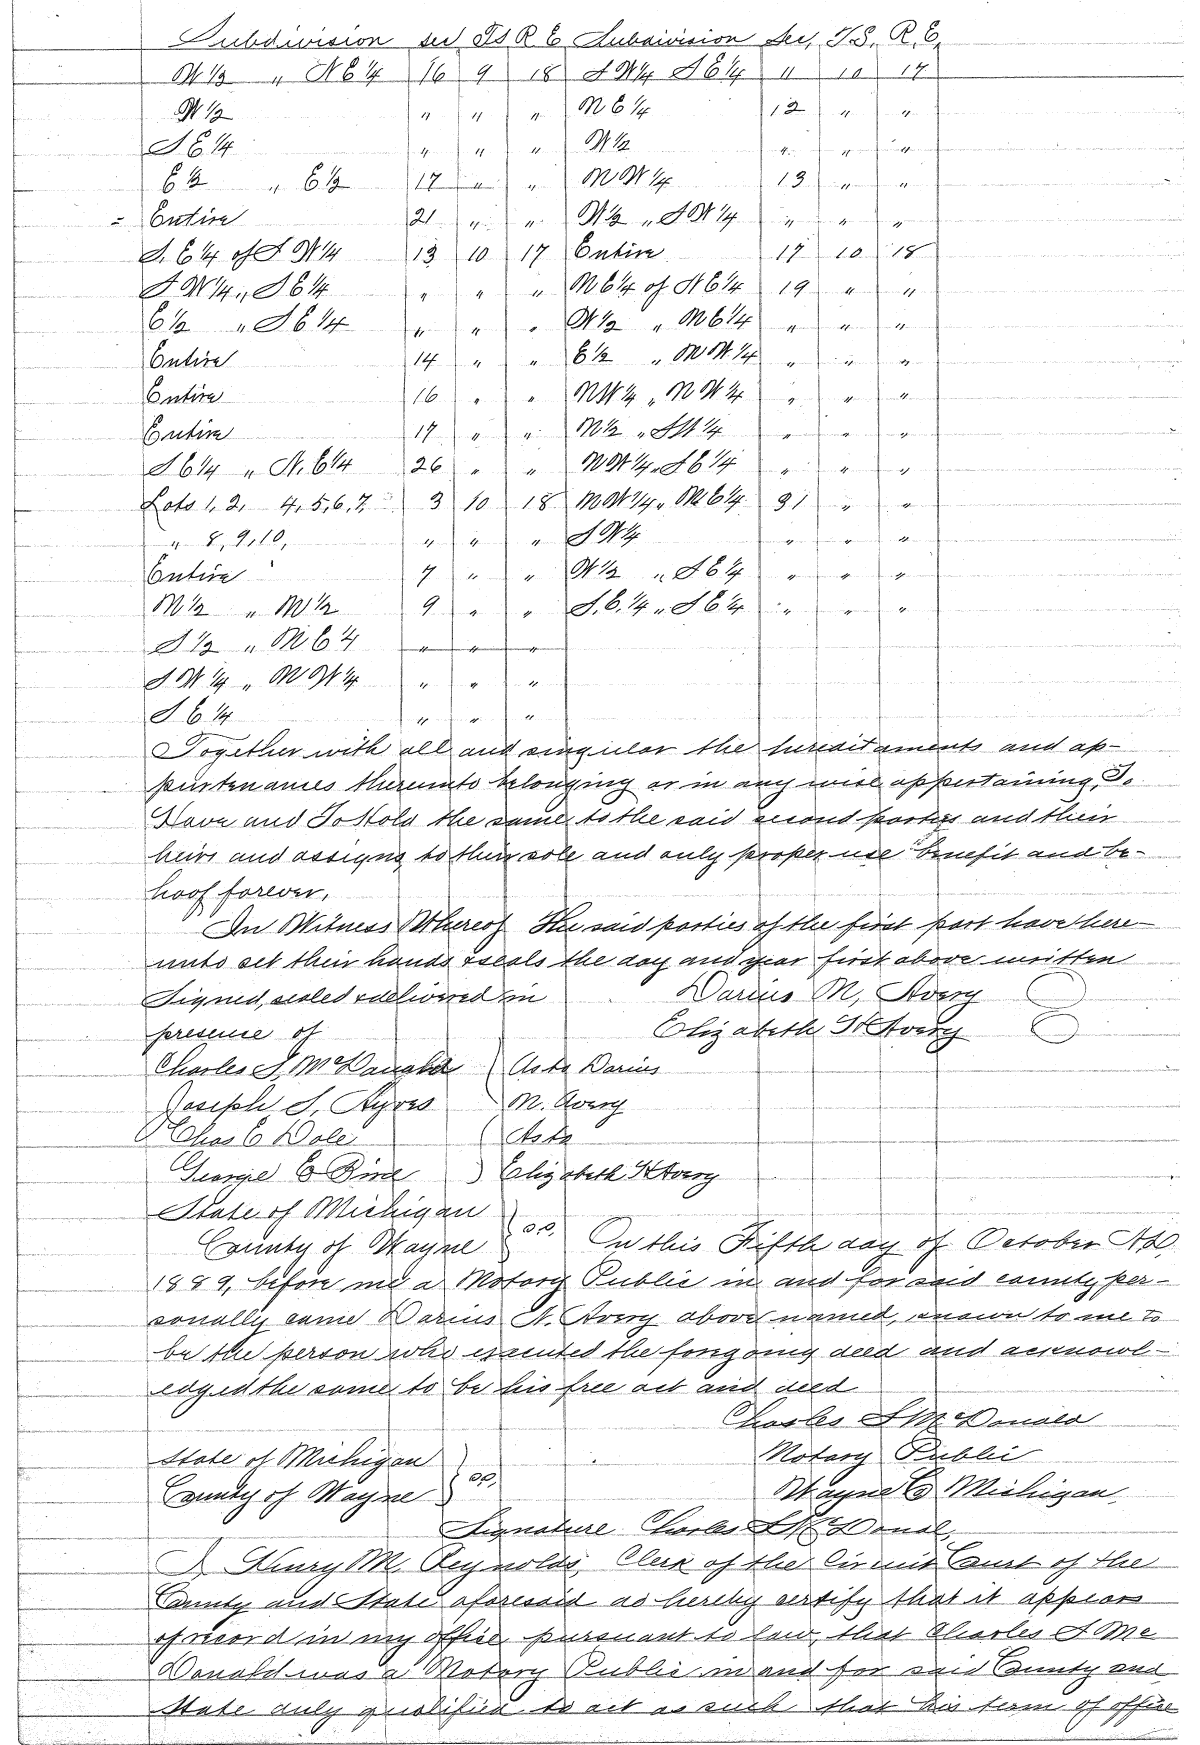 Subdivision sec TS R E Subdivision Sec, T.S. R. E.
W 1/2 " N E 1/4 16 9 18 S W 1/4 S E 1/4 11 10 17
W 1/2 " " " N E 1/4 12 " "
S E 1/4 " " " W 1/2 " " "
E 1/2 " E 1/2 17 " " N W 1/4 13 " "
Entire 21 " " W 1/2 " S W 1/4 " " "
S. E 1/4 of S W 1/4 13 10 17 Entire 17 10 18
S W 1/4 " S E 1/4 " " " N E 1/4 of N E 1/4 19 " "
E 1/2 " S E 1/4 " " " W 1/2 " N E 1/4 " " "
Entire 14 " " E 1/2 " N W 1/4 " " "
Entire 16 " " N W 1/4 " N W 1/4 " " "
Entire 17 " " N 1/2 " S W 1/4 " " "
S E 1/4 " N. E 1/4 26 " " N W 1/4 " S E 1/4 " " "
Lots 1, 2, 4, 5, 6, 7, 3 10 18 N W 1/4 " N E 1/4 31 " "
" 8, 9, 10, " " " S W 1/4 " " "
Entire 7 " " W 1/2 " S E 1/4 " " "
N 1/2 " N 1/2 9 " " S. E. 1/4 " S E 1/4 " " "
S 1/2 " N E 1/4 " " "
S W 1/4 " N W 1/4 " " "
S E 1/4 " " "
Together with all and singular the hereditaments and ap-
purtenances thereunto belonging or in any wise appertaining, To
Have and To Hold the same to the said second parties and their
heirs and assigns to their sole and only proper use benefit and be-
hoof forever,
In Witness Whereof The said parties of the first part have here-
unto set their hands & seals the day and year first above written
Signed, sealed & delivered in Darius M, Avery
presence of Elizabeth H Avery
Charles S. McDonald As to Darius
Joseph S. Ayres M. Avery
Chas E Dole As to
George E Bird Elizabeth H Avery
State of Michigan
County of Wayne } ss. On this Fifth day of October AD
1889, before me a Notary Public in and for said county per-
sonally came Darius N. Avery above named, known to me to
be the person who executed the foregoing deed and acknowl-
edged the same to be his free act and deed
Charles S McDonald
State of Michigan Notary Public
County of Wayne } ss. Wayne Co Michigan.
Signature Charles S McDonal,
I Henry M. Reynolds, Clerk of the Circuit Court of the
County and State aforesaid do hereby certify that it appears
of record in my office pursuant to law, that Charles S Mc
Donald was a Notary Public in and for said County and
State duly qualified to act as such that his term of office